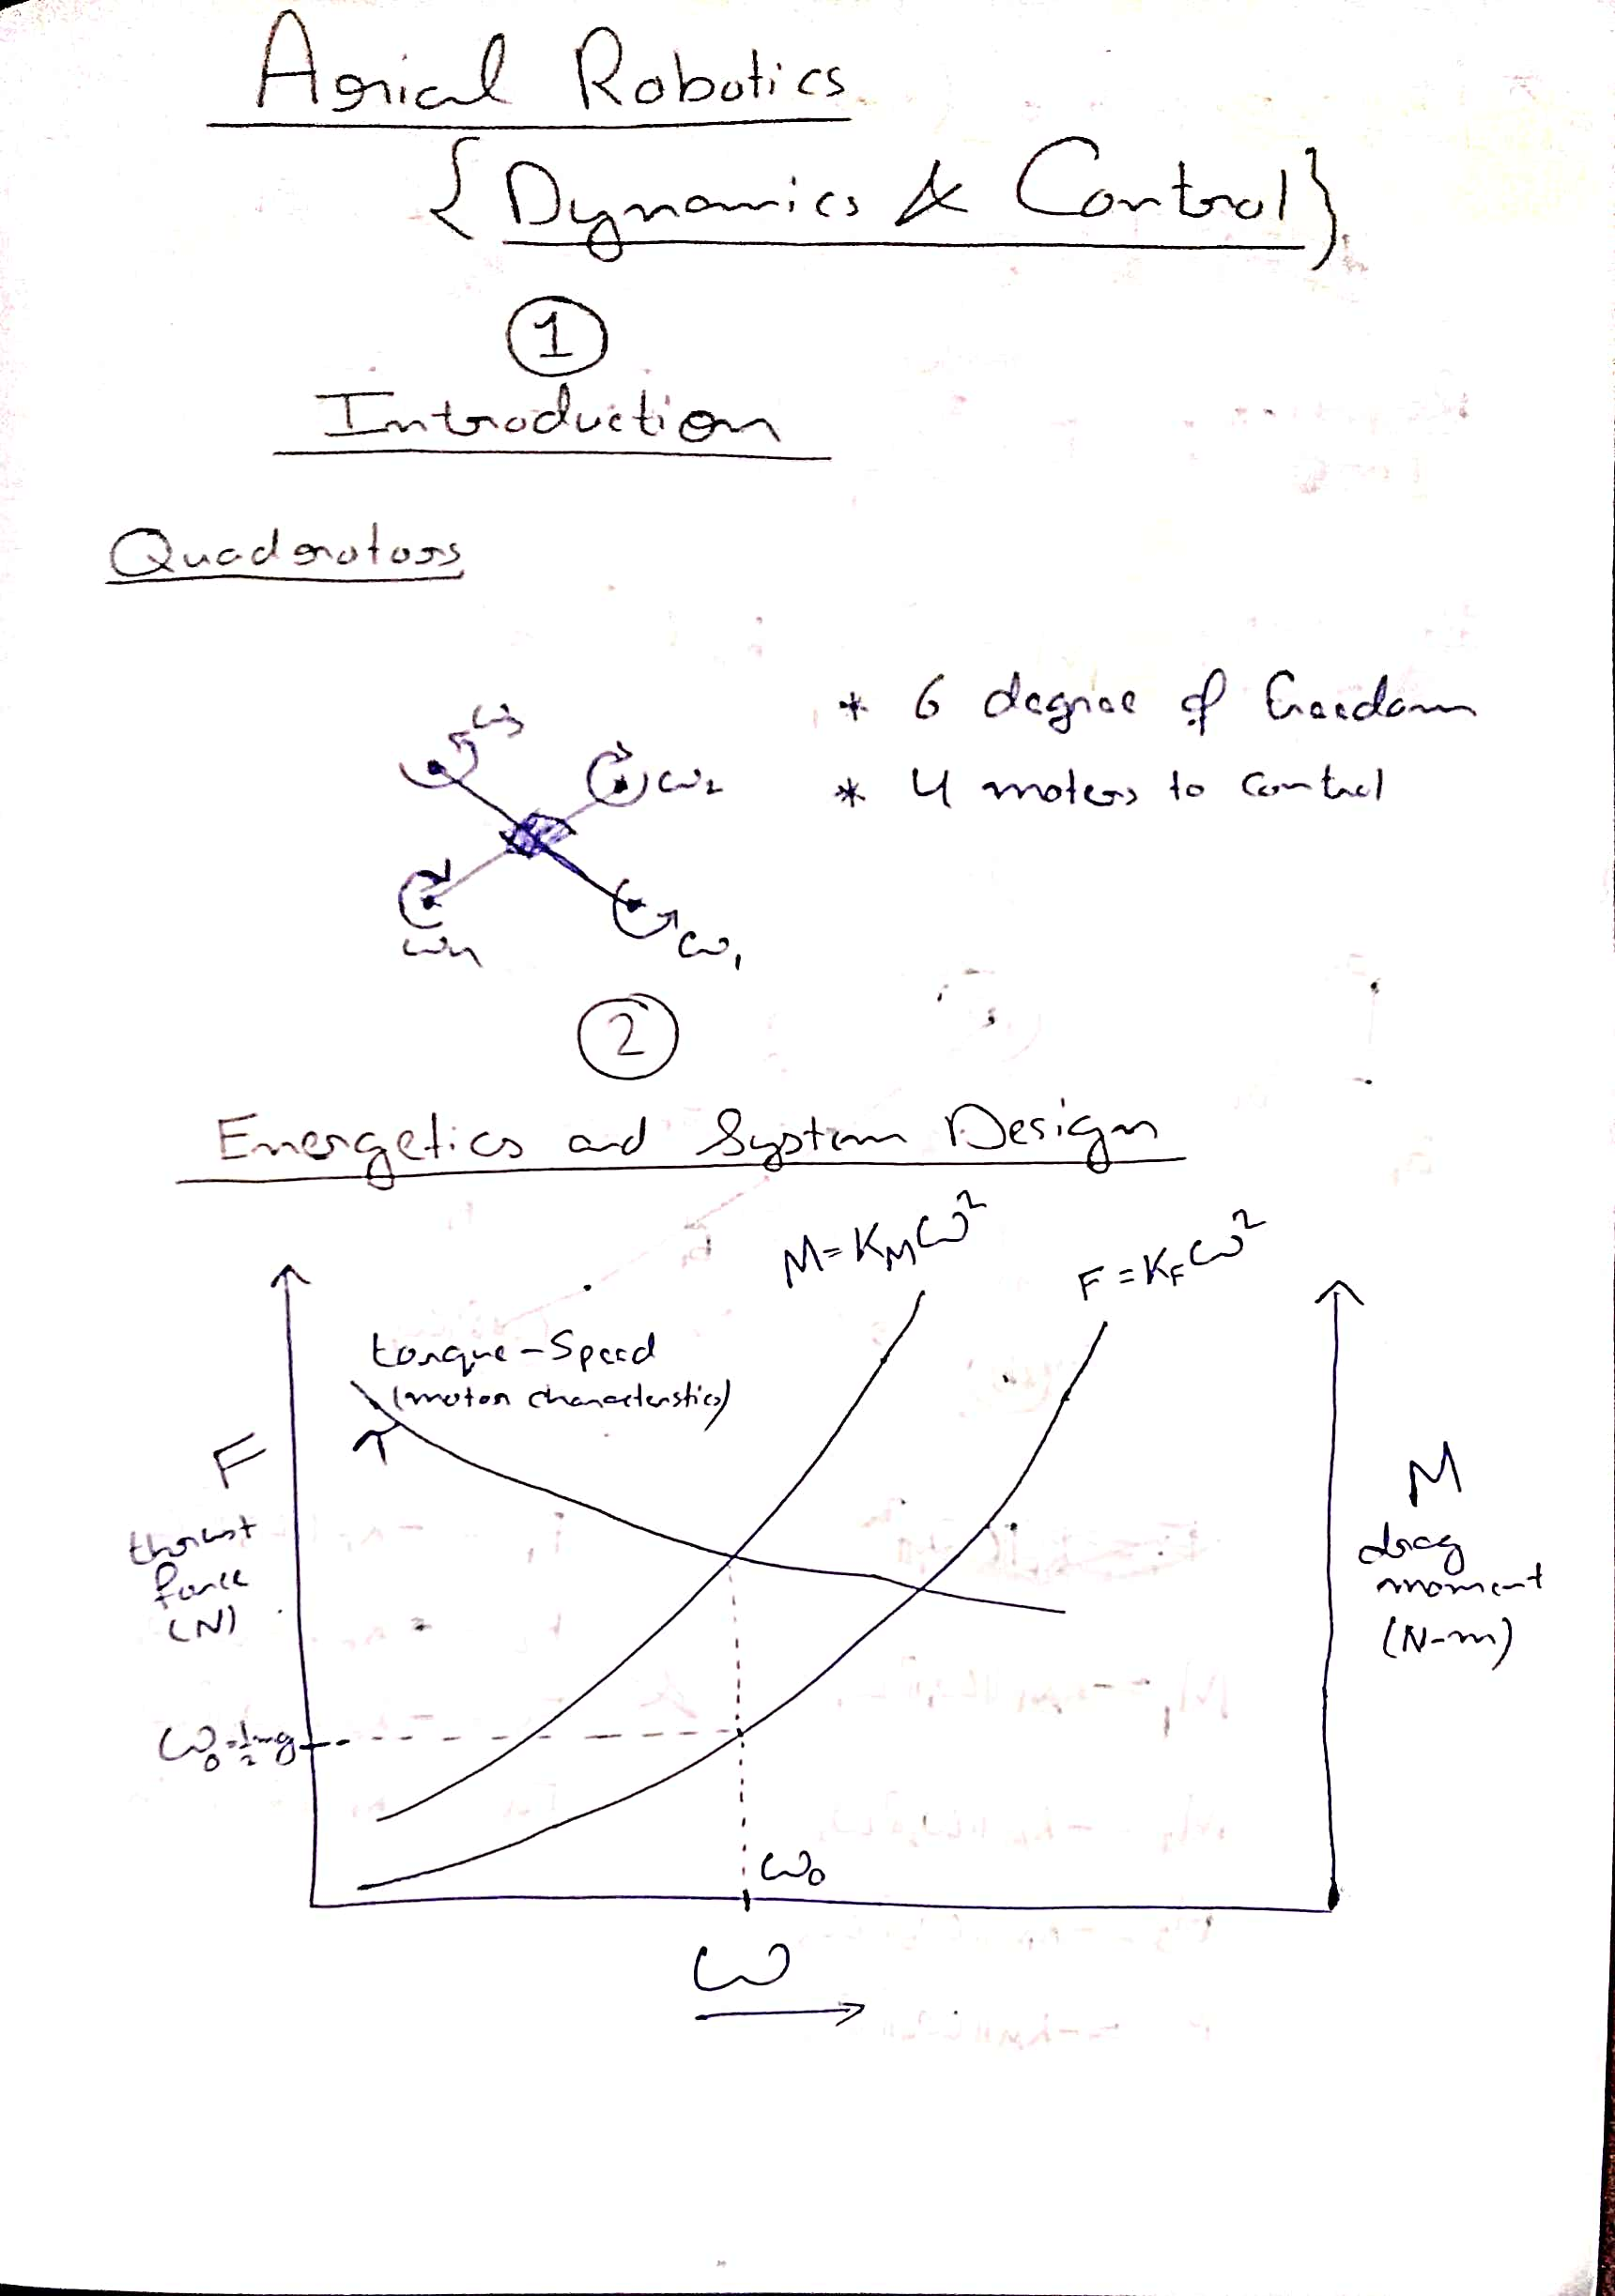 Aerial Robotics
{Dynamics & Control}
1
Introduction
Quadrotors
* 6 degree of freedom
* 4 moters to control
ω3
ω2
ω4
ω1
2
Energetics and System Design
M=K_Mω²
F=K_Fω²
torque-Speed
(motor characterstics)
F
thrust
force
(N)
M
drag
moment
(N-m)
ω₀
ω₀
ω